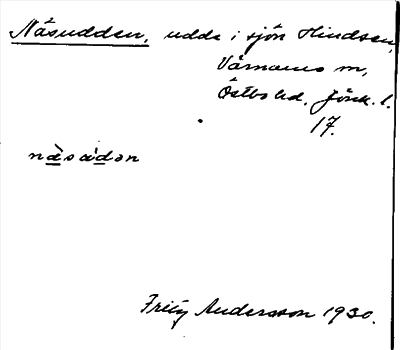 Näsudden, udde i sjön Hindsen,
Värnamo m,
Östbo hd. Jönk. l.
17.
nàsádən
Fritz Andersson 1930.